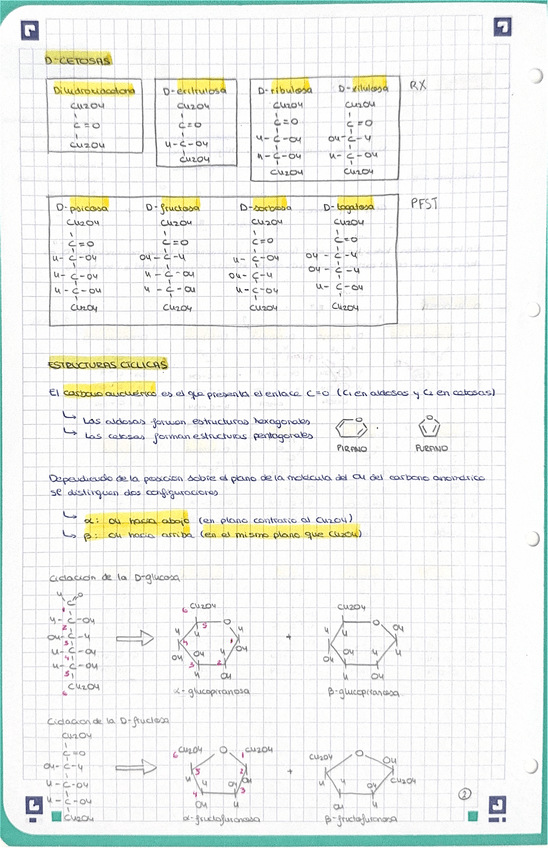 D-CETOSAS
Dihydroxiacetona D-eritrulosa D-ribulosa D-xilulosa RX
CH2OH CH2OH CH2OH CH2OH
C=O C=O C=O C=O
CH2OH H-C-OH H-C-OH OH-C-H
CH2OH H-C-OH H-C-OH
CH2OH CH2OH
D-psicosa D-fructosa D-sorbosa D-tagatosa PFST
CH2OH CH2OH CH2OH CH2OH
C=O C=O C=O C=O
H-C-OH OH-C-H H-C-OH OH-C-H
H-C-OH H-C-OH OH-C-H OH-C-H
H-C-OH H-C-OH H-C-OH H-C-OH
CH2OH CH2OH CH2OH CH2OH
ESTRUCTURAS CÍCLICAS
El carbono anomérico es el que presenta el enlace C=O (C1 en aldosas y C2 en cetosas)
↳ Las aldosas forman estructuras hexagonales
↳ Las cetosas forman estructuras pentagonales
O O
PIRANO FURANO
Dependiendo de la posición sobre el plano de la molécula del OH del carbono anomérico
se distinguen dos configuraciones
↳ α: OH hacia abajo (en plano contrario al CH2OH)
↳ β: OH hacia arriba (en el mismo plano que CH2OH)
Ciclación de la D-glucosa
H O
C
1
H-C-OH
2
OH-C-H
3
H-C-OH
4
H-C-OH
5
CH2OH
6
6 CH2OH
5 O
H H H
4 1
OH OH H OH
3 2
H OH
α-glucopiranosa
+
CH2OH
O OH
H H
OH OH H H
H OH
β-glucopiranosa
Ciclación de la D-fructosa
CH2OH
C=O
OH-C-H
H-C-OH
H-C-OH
CH2OH
6 CH2OH O 1 CH2OH
5 2
H H OH OH
4 3
OH H
α-fructofuranosa
+
CH2OH O OH
H H OH CH2OH
OH H
β-fructofuranosa
2